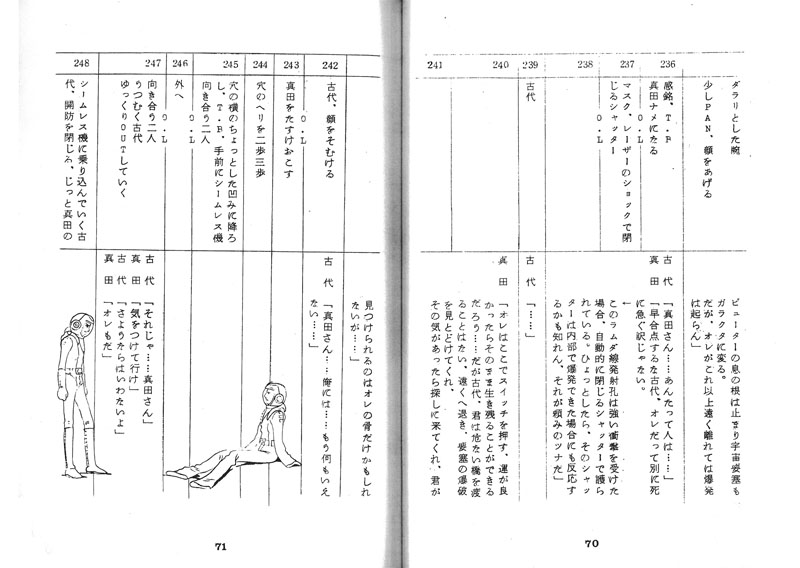 ダラリとした腕
少しPAN、顔をあげる
ピューターの息の根は止まり宇宙要塞も
ガラクタに変る。
だが、オレがこれ以上遠く離れては爆発
は起らん」
236
感銘、T.P
真田ナメにたる
O.L
古代「真田さん……あんたって人は……」
真田「早合点するな古代、オレだって別に死
に急ぐ訳じゃない。
237
マスク、レーザーのショックで閉
じるシャッター
O.L
←
このラムダ線発射孔は強い衝撃を受けた
場合、自動的に閉じるシャッターで護ら
れている。ひょっとしたら、そのシャッ
ターは内部で爆発できた場合にも反応す
るかも知れん、それが頼みのツナだ」
238
239
古代
古代「……」
240
真田「オレはここでスイッチを押す、運が良
かったらそのまま生き残ることができる
だろう……だが古代、君は危ない橋を渡
ることはない、遠くへ退き、要塞の爆破
を見とどけてくれ、
その気があったら探しに来てくれ、君が
241
70
見つけられるのはオレの骨だけかもしれ
ないが……」
242
古代、顔をそむける
古代「真田さん……俺には……もう何もいえ
ない……」
243
真田をたすけおこす
O.L
244
穴のヘリを二歩三歩
245
穴の横のちょっとした凹みに降ろ
し、T.B、手前にシームレス機
向き合う二人
O.L
246
外へ
O.L
247
向き合う二人
うつむく古代
ゆっくりOUTしていく
古代「それじゃ……真田さん」
真田「気をつけて行け」
古代「さようならはいわないよ」
真田「オレもだ」
248
シームレス機に乗り込んでいく古
代、開防を閉じる、じっと真田の
71